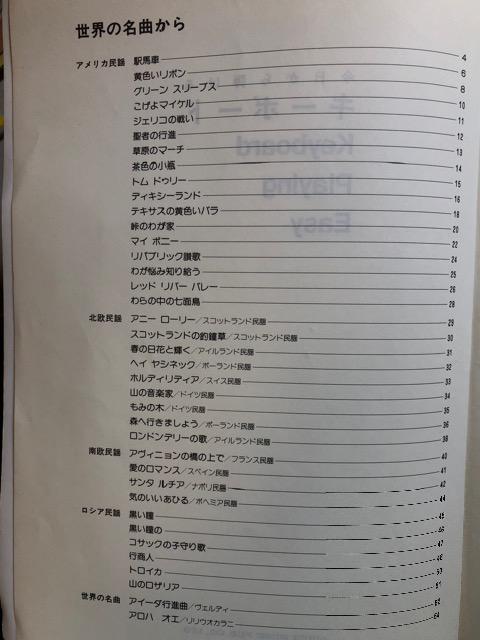 世界の名曲から
アメリカ民謡 駅馬車 4
黄色いリボン 6
グリーン スリーブス 8
こげよマイケル 10
ジェリコの戦い 11
聖者の行進 12
草原のマーチ 13
茶色の小瓶 14
トム ドゥリー 15
ディキシーランド 16
テキサスの黄色いバラ 18
峠のわが家 20
マイ ボニー 22
リパブリック讃歌 24
わが悩み知り給う 25
レッド リバー バレー 26
わらの中の七面鳥 28
北欧民謡 アニー ローリー/スコットランド民謡 29
スコットランドの釣鐘草/スコットランド民謡 30
春の日花と輝く/アイルランド民謡 31
ヘイ ヤシネック/ポーランド民謡 32
ホルディリディア/スイス民謡 33
山の音楽家/ドイツ民謡 34
もみの木/ドイツ民謡 35
森へ行きましょう/ポーランド民謡 36
ロンドンデリーの歌/アイルランド民謡 38
南欧民謡 アヴィニョンの橋の上で/フランス民謡 40
愛のロマンス/スペイン民謡 41
サンタ ルチア/ナポリ民謡 42
気のいいあひる/ボヘミア民謡 44
ロシア民謡 黒い瞳 45
黒い瞳の 46
コサックの子守り歌 47
行商人 48
トロイカ
山のロザリア 51
世界の名曲 アイーダ行進曲/ヴェルディ
アロハ オエ/リリウオカラニ 54
今日から弾ける
キーボード
Keyboard
Playing
Easy